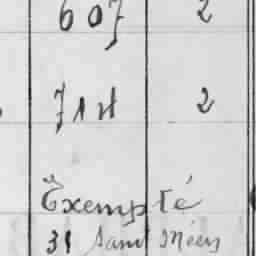 607 2
2
Exempté
31 Saint Méen